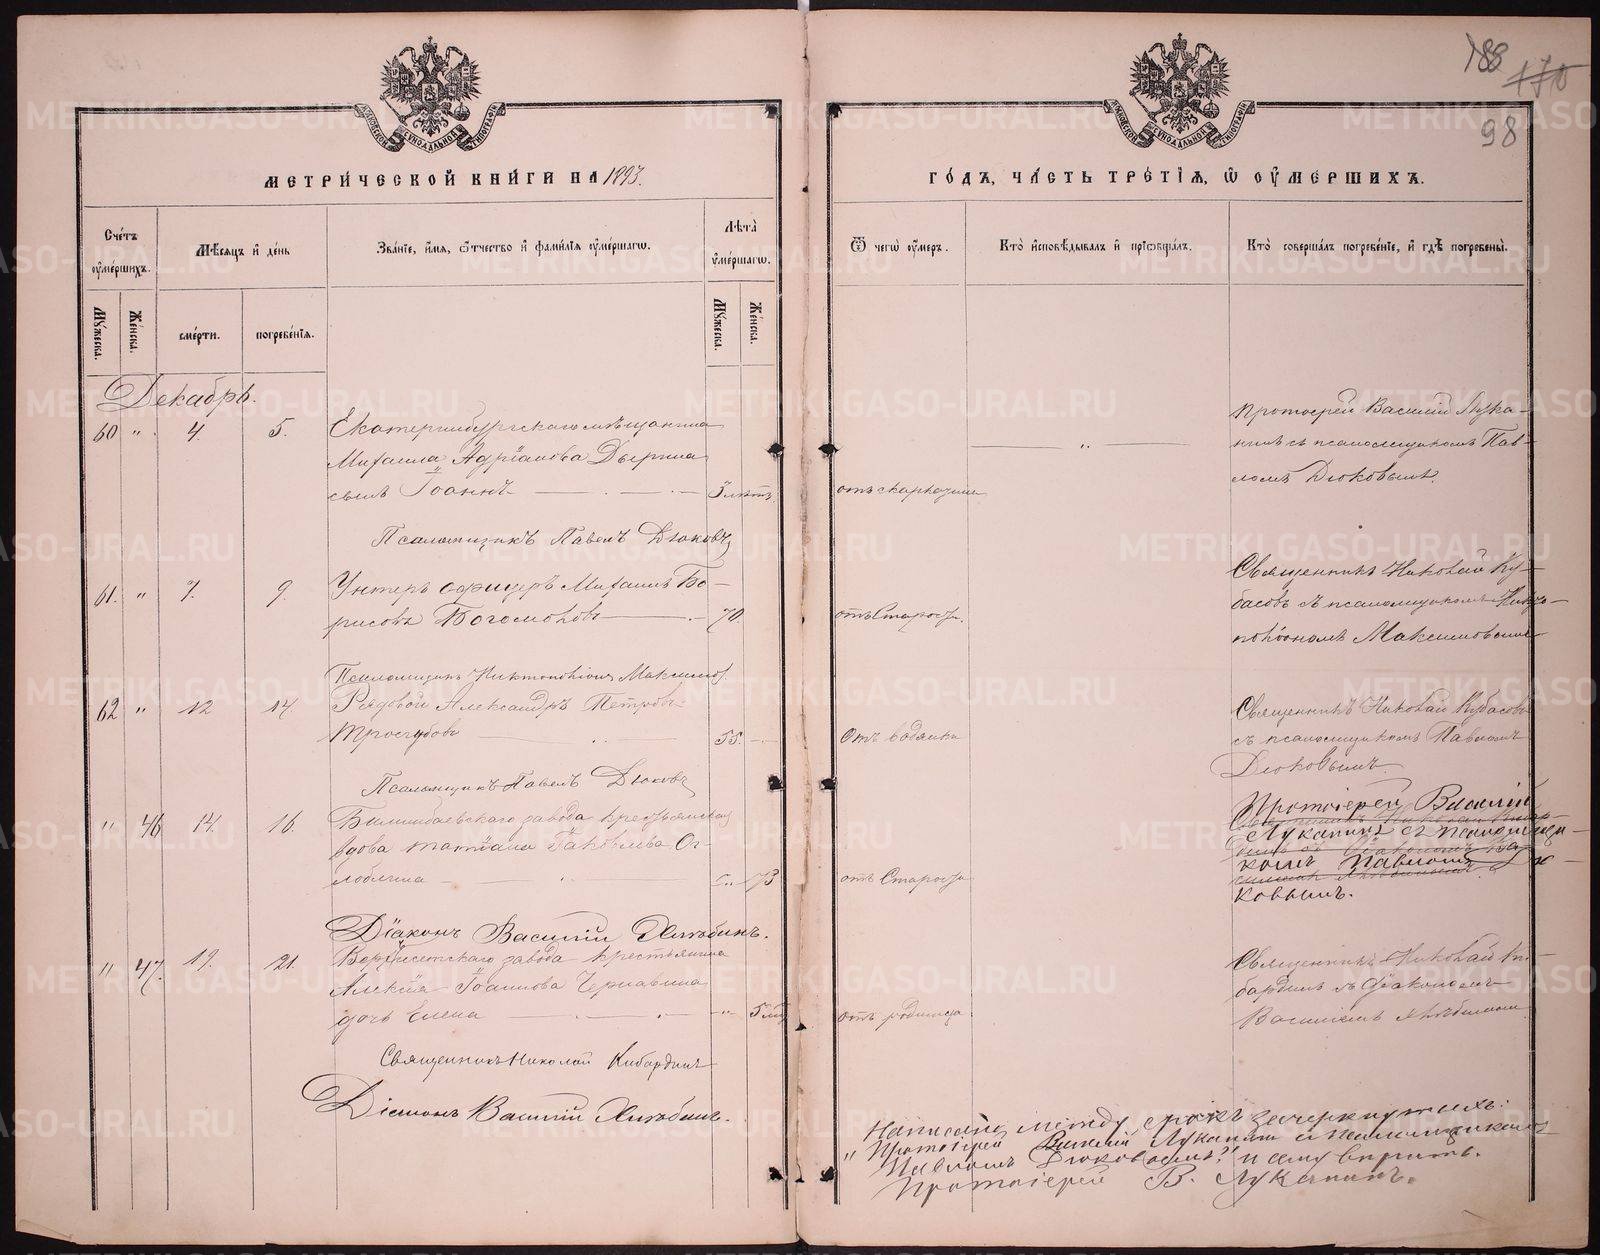 188
170
98
МЕТРИ́ЧЕСКОЙ КНИ́ГИ НА 1893.
ГО́ДЪ, ЧА́СТЬ ТРЕ́ТІѦ, Ѡ ОУ҆МЕ́РШИХЪ.
Сче́тъ оу҆ме́ршихъ.
Мѣ́сяцъ и҆ де́нь
Зва́ніе, и҆́мя, ѻ҆́тчество и҆ фами́лія оу҆ме́ршагѡ.
Лѣта̀ оу҆ме́ршагѡ.
Ѿ чегѡ̀ оу҆́меръ.
Кто̀ и҆сповѣ́дывалъ и҆ прїѻбща́лъ.
Кто̀ соверша́лъ погребе́ніе, и҆ гдѣ̀ погребены̀.
Мꙋ́жеска.
Же́нска.
сме́рти.
погребе́нія.
Мꙋ́жеска.
Же́нска.
Декабрь.
60 " 4. 5. Екатеринбургскаго мѣщанина
Михаила Адріанова Дьерина
сынъ Іоаннъ 3 лѣтъ
отъ скарлатины
Протоіерей Василій Лука-
нинъ съ псаломщикомъ Пав-
ломъ Дюковымъ.
Псаломщикъ Павелъ Дюковъ
61. " 7. 9. Унтеръ офицеръ Михаилъ Бо-
рисовъ Богомоловъ 70.
отъ Старости.
Священникъ Николай Ку-
басовъ съ псаломщикомъ Никто-
поліономъ Максимовымъ
Псаломщикъ Никтополіонъ Максимов
62 " 12 14 Рядовой Александръ Петровъ
Трогубовъ 55.
Отъ водянки
Священникъ Николай Кубасовъ
съ псаломщикомъ Павломъ
Дюковымъ
Псаломщикъ Павелъ Дюковъ
" 46 14. 16. Билимбаевскаго завода крестьянская
вдова Татіана Іаковлева Ог-
лоблина 73
отъ Старости
Протоіерей Василій
Луканинъ съ псаломщи-
комъ Павломъ Дю-
ковымъ.
Діаконъ Василій Хлѣбинъ.
" 47. 19. 21. Верхисетскаго завода крестьянина
Алексія Іоаннова Чернавина
дочь Елена 5 лѣ
отъ родимца.
Священникъ Николай Ки-
бардинъ съ діакономъ
Василіемъ Хлѣбинымъ
Священникъ Николай Кибардинъ
Діаконъ Василій Хлѣбинъ.
Написано между строкъ зачеркнутыхъ:
"Протоіерей Василій Луканинъ съ псаломщикомъ
Павломъ Дюковымъ" и сему вѣрить.
Протоіерей В. Луканинъ.